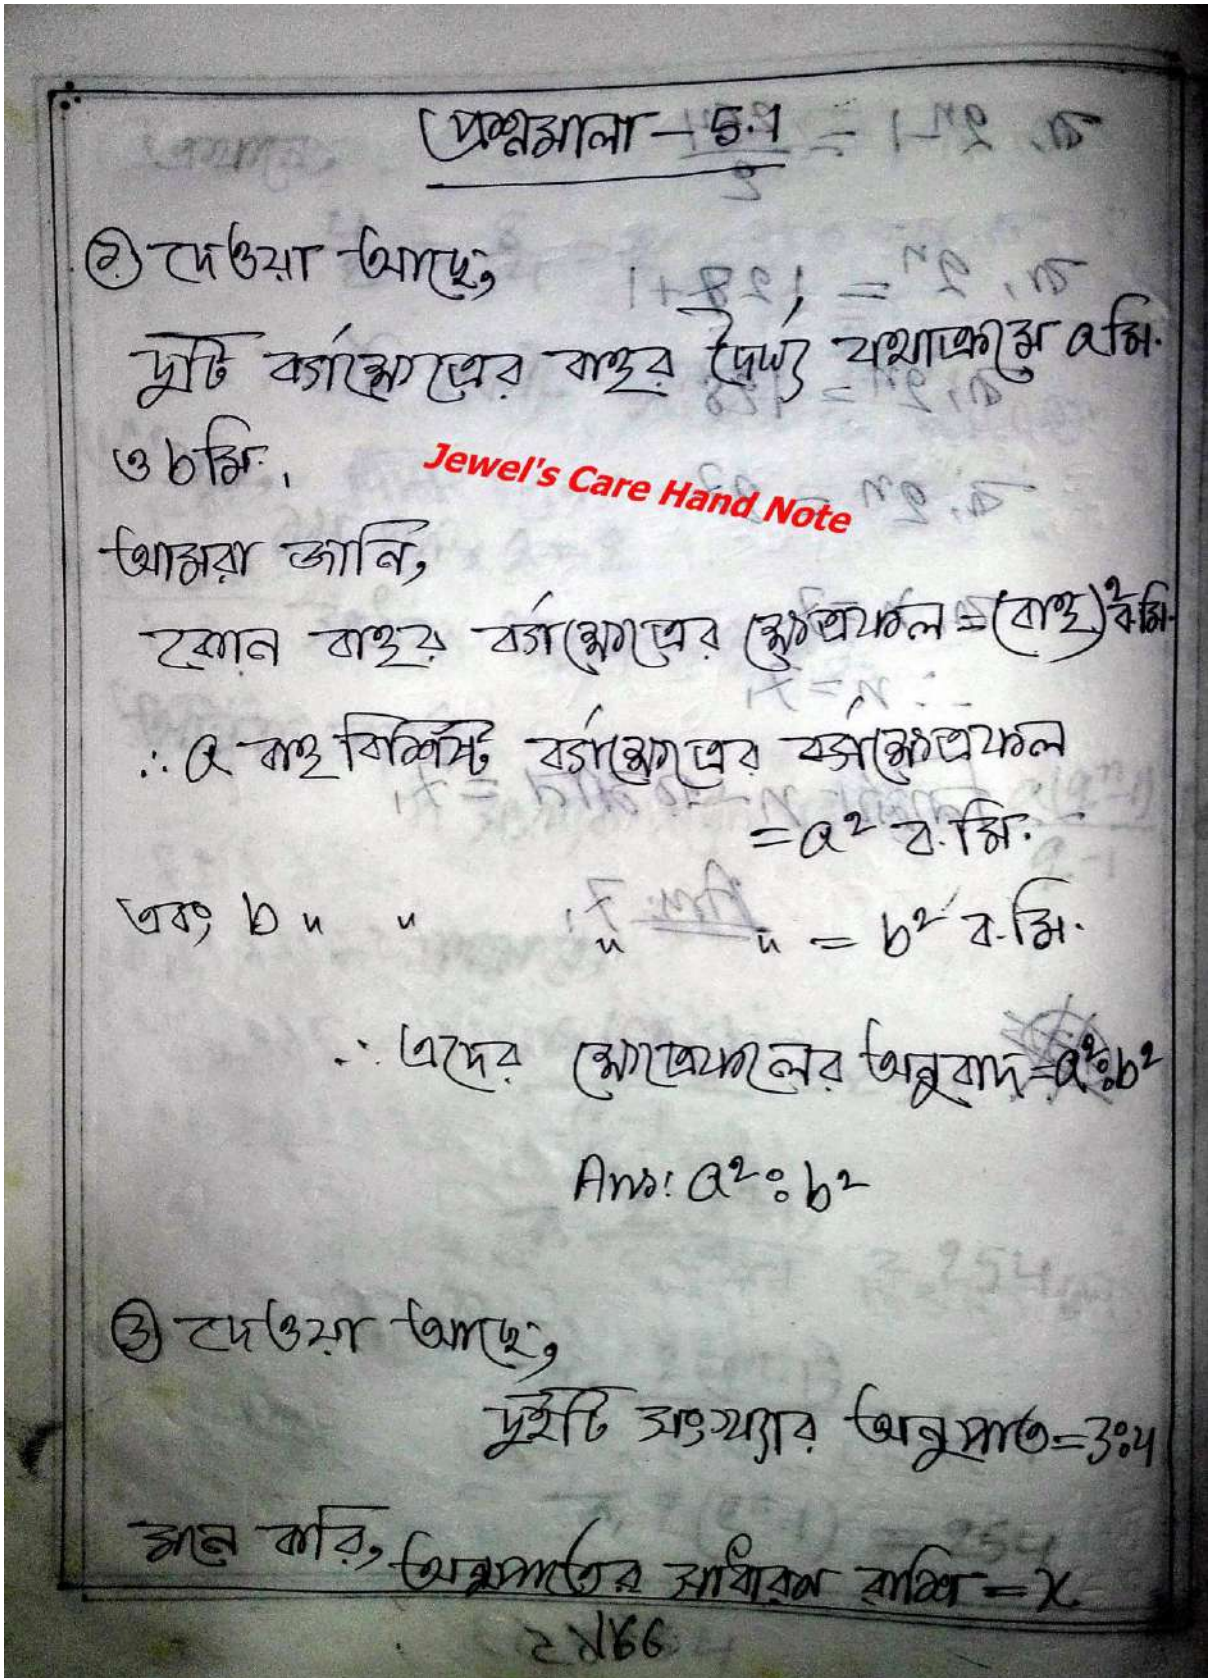 প্রশ্নমালা - 5.1
২) দেওয়া আছে,
দুটি বর্গক্ষেত্রের বাহুর দৈর্ঘ্য যথাক্রমে a মি.
ও b মি.
Jewel's Care Hand Note
আমরা জানি,
কোন বাহুর বর্গক্ষেত্রের ক্ষেত্রফল = (বাহু)² ব.মি.
∴ a বাহু বিশিষ্ট বর্গক্ষেত্রের বর্গক্ষেত্রফল
= a² ব. মি.
এবং b " " " " = b² ব. মি.
∴ এদের ক্ষেত্রফলের অনুবাদ = a² : b²
Ans: a² : b²
৩) দেওয়া আছে,
দুইটি সংখ্যার অনুপাত = 3:4
মনে করি, অনুপাতের সাধারন রাশি = x